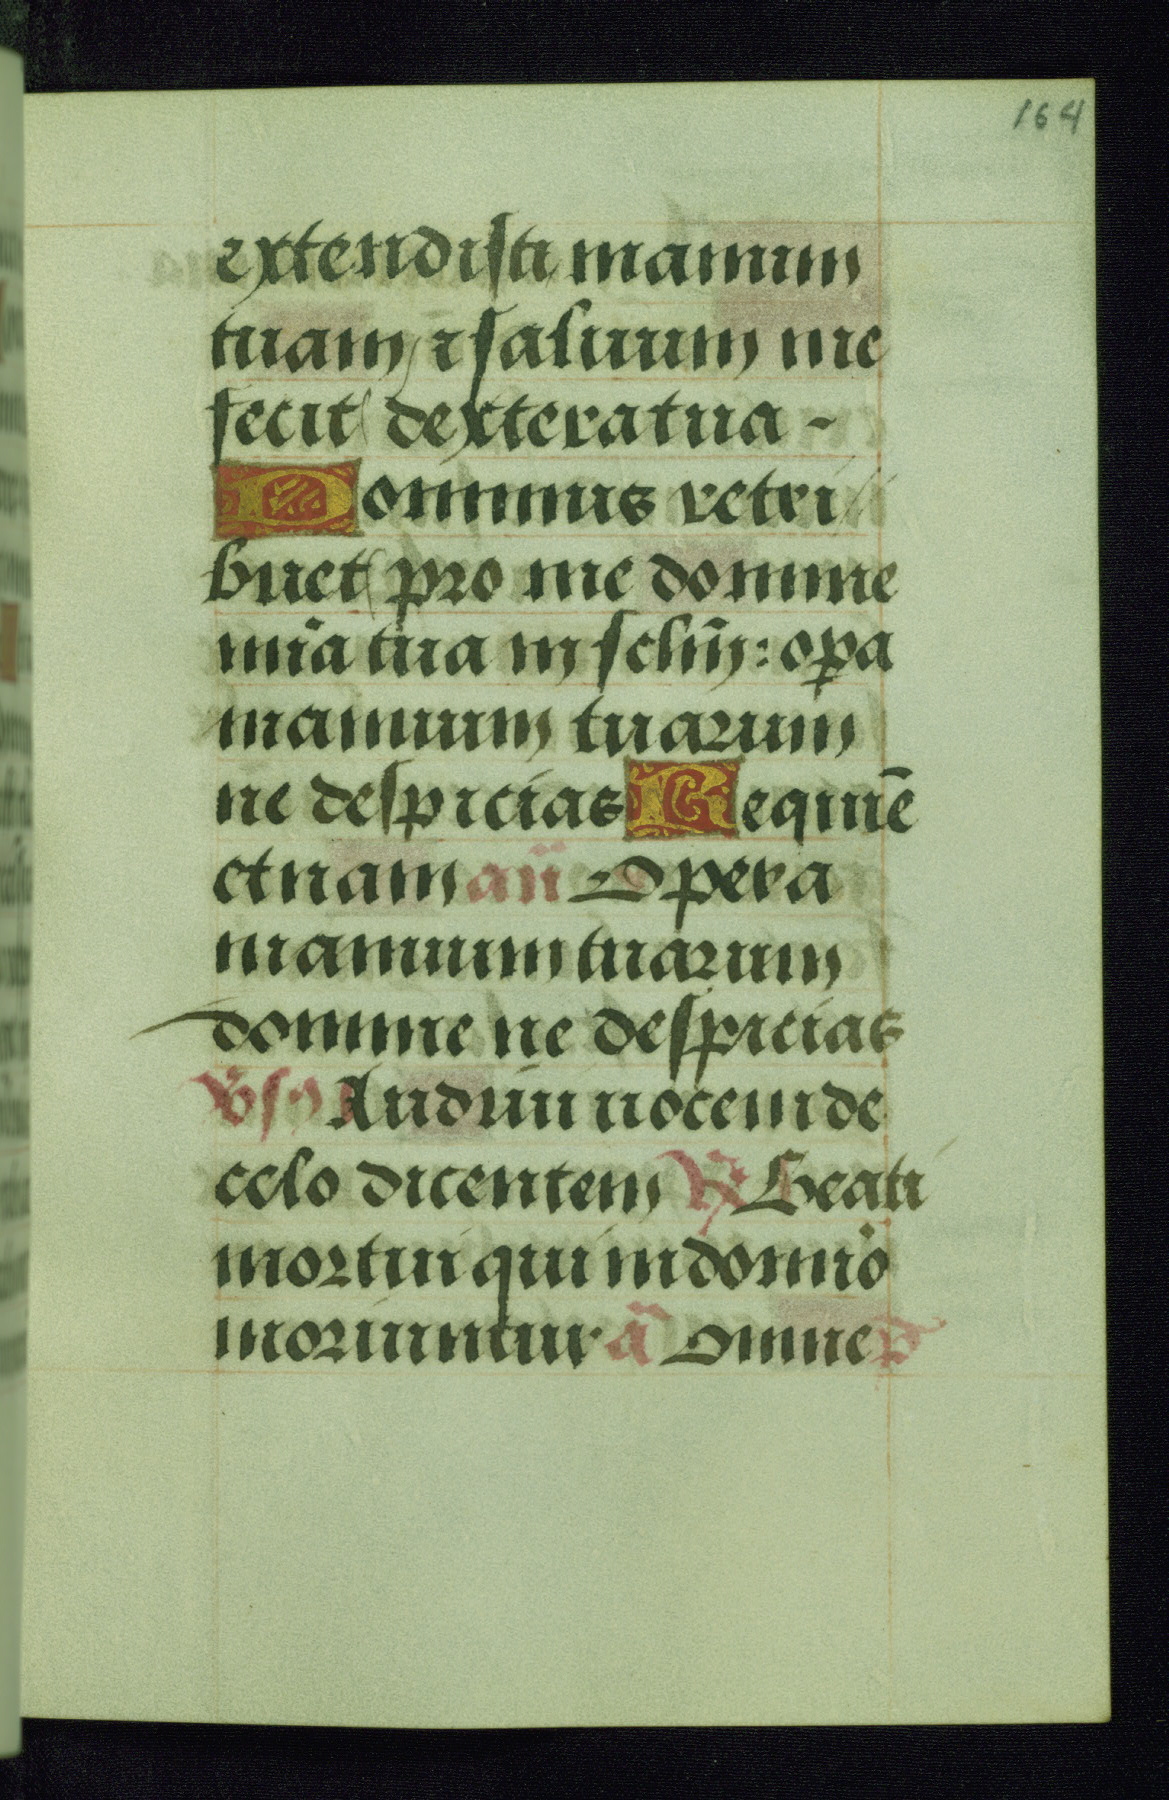 164
extendisti manum
tuam ⁊ saluum me
fecit dextera tua -
Dominus retri
buet pro me domine
mīa tua in sclm̄: opa
manuum tuarum
ne despicias Requiē
eternam an̄ Opera
manuum tuarum
domine ne despicias
vs Audiui uocem de
celo dicentem R Beati
mortui qui in domīo
moriuntur ā Omne p̄